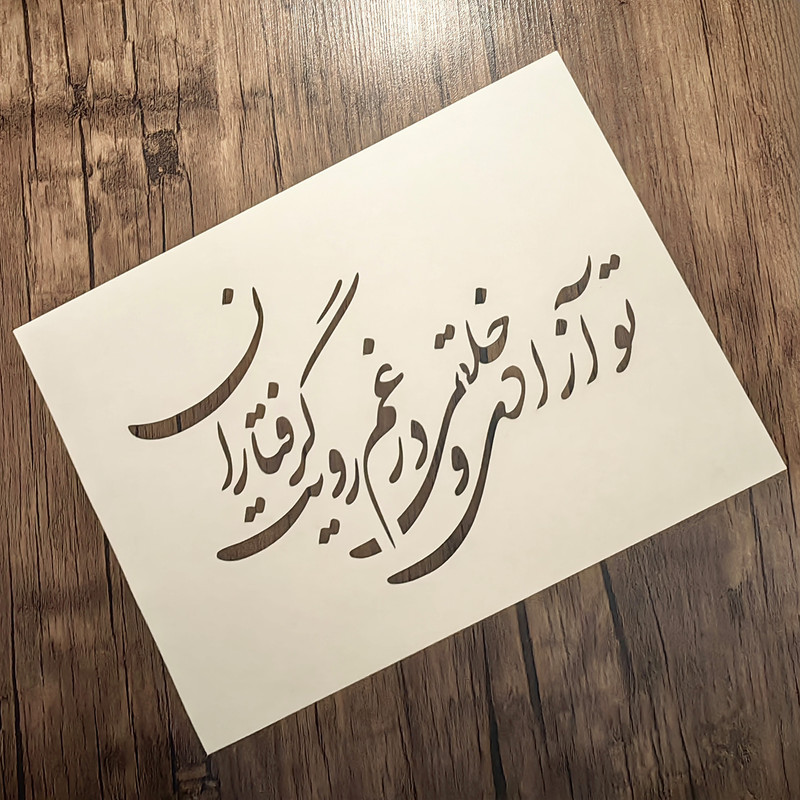 تو آزادی و خلقی در غم رویت گرفتاران